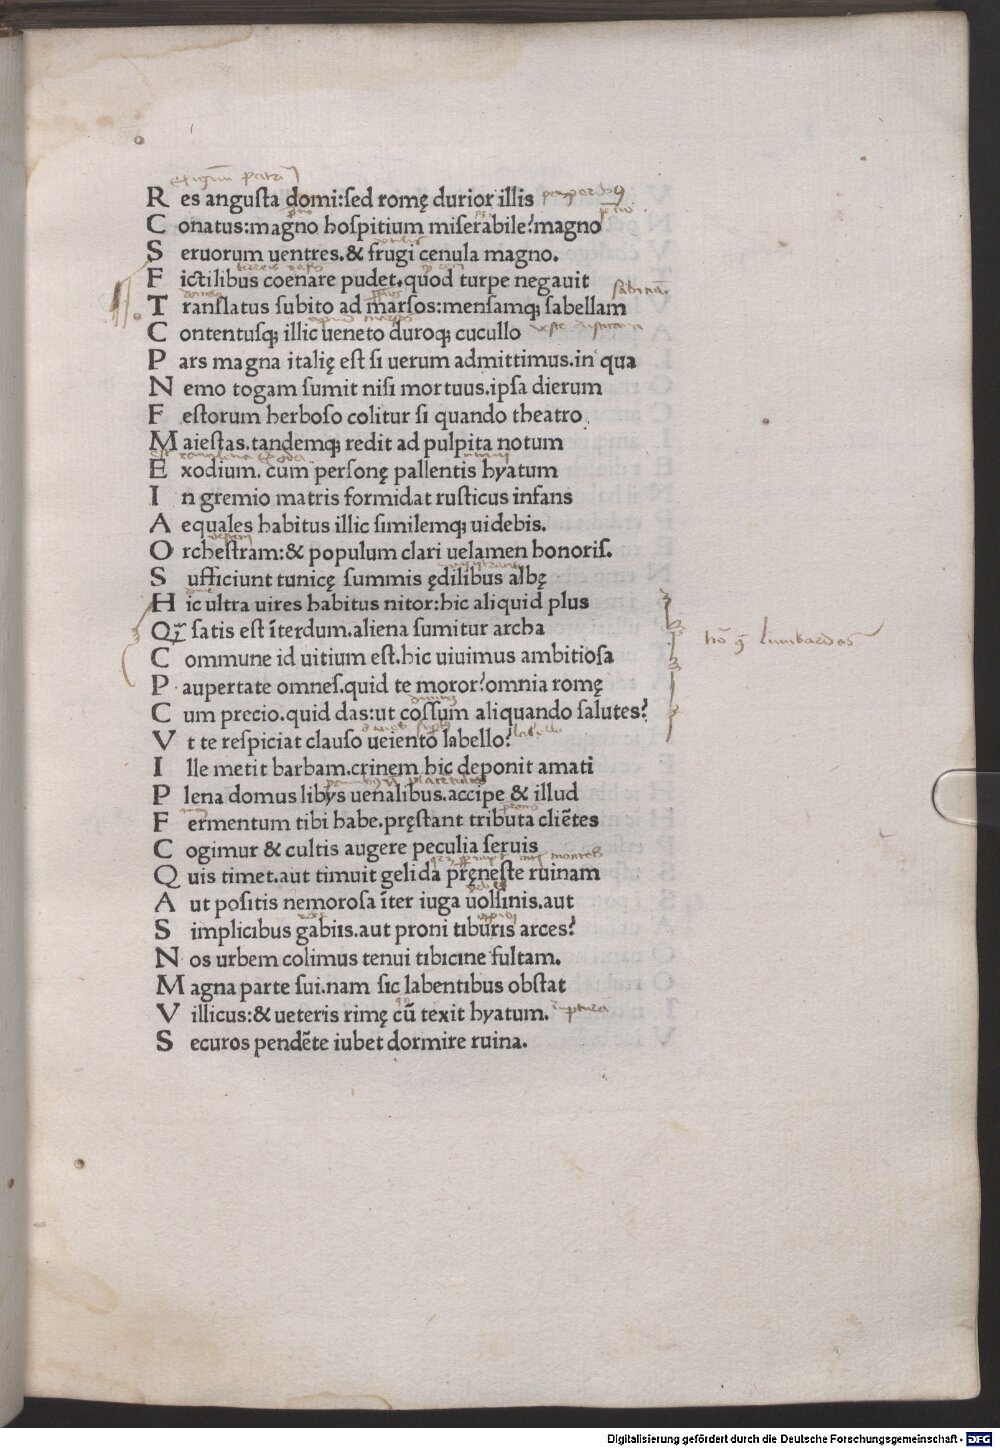 R es angusta domi:sed romę durior illis
C onatus:magno hospitium miserabile?magno
S eruorum uentres.& frugi cenula magno.
F ictilibus coenare pudet.quod turpe negauit
T ranslatus subito ad marsos:mensamqꝫ sabellam
C ontentusqꝫ illic ueneto duroqꝫ cucullo
P ars magna italię est si uerum admittimus.in qua
N emo togam sumit nisi mortuus.ipsa dierum
F estorum herboso colitur si quando theatro
M aiestas.tandemqꝫ redit ad pulpita notum
E xodium. cum personę pallentis hyatum
I n gremio matris formidat rusticus infans
A equales habitus illic similemqꝫ uidebis.
O rchestram:& populum clari uelamen honoris.
S ufficiunt tunicę summis ędilibus albę
H ic ultra uires habitus nitor:hic aliquid plus
Q satis est īterdum.aliena sumitur archa
C ommune id uitium est.hic uiuimus ambitiosa
P aupertate omnes.quid te moror?omnia romę
C um precio.quid das:ut cossum aliquando salutes?
V t te respiciat clauso ueiento labello?
I lle metit barbam.crinem hic deponit amati
P lena domus libys uenalibus.accipe & illud
F ermentum tibi habe.pręstant tributa cliētes
C ogimur & cultis augere peculia seruis
Q uis timet.aut timuit gelida pręneste ruinam
A ut positis nemorosa īter iuga uolsinis.aut
S implicibus gabiis.aut proni tiburis arces?
N os urbem colimus tenui tibicine fultam.
M agna parte sui.nam sic labentibus obstat
V illicus:& ueteris rimę cū texit hyatum.
S ecuros pendēte iubet dormire ruina.
Digitalisierung gefördert durch die Deutsche Forschungsgemeinschaft - DFG